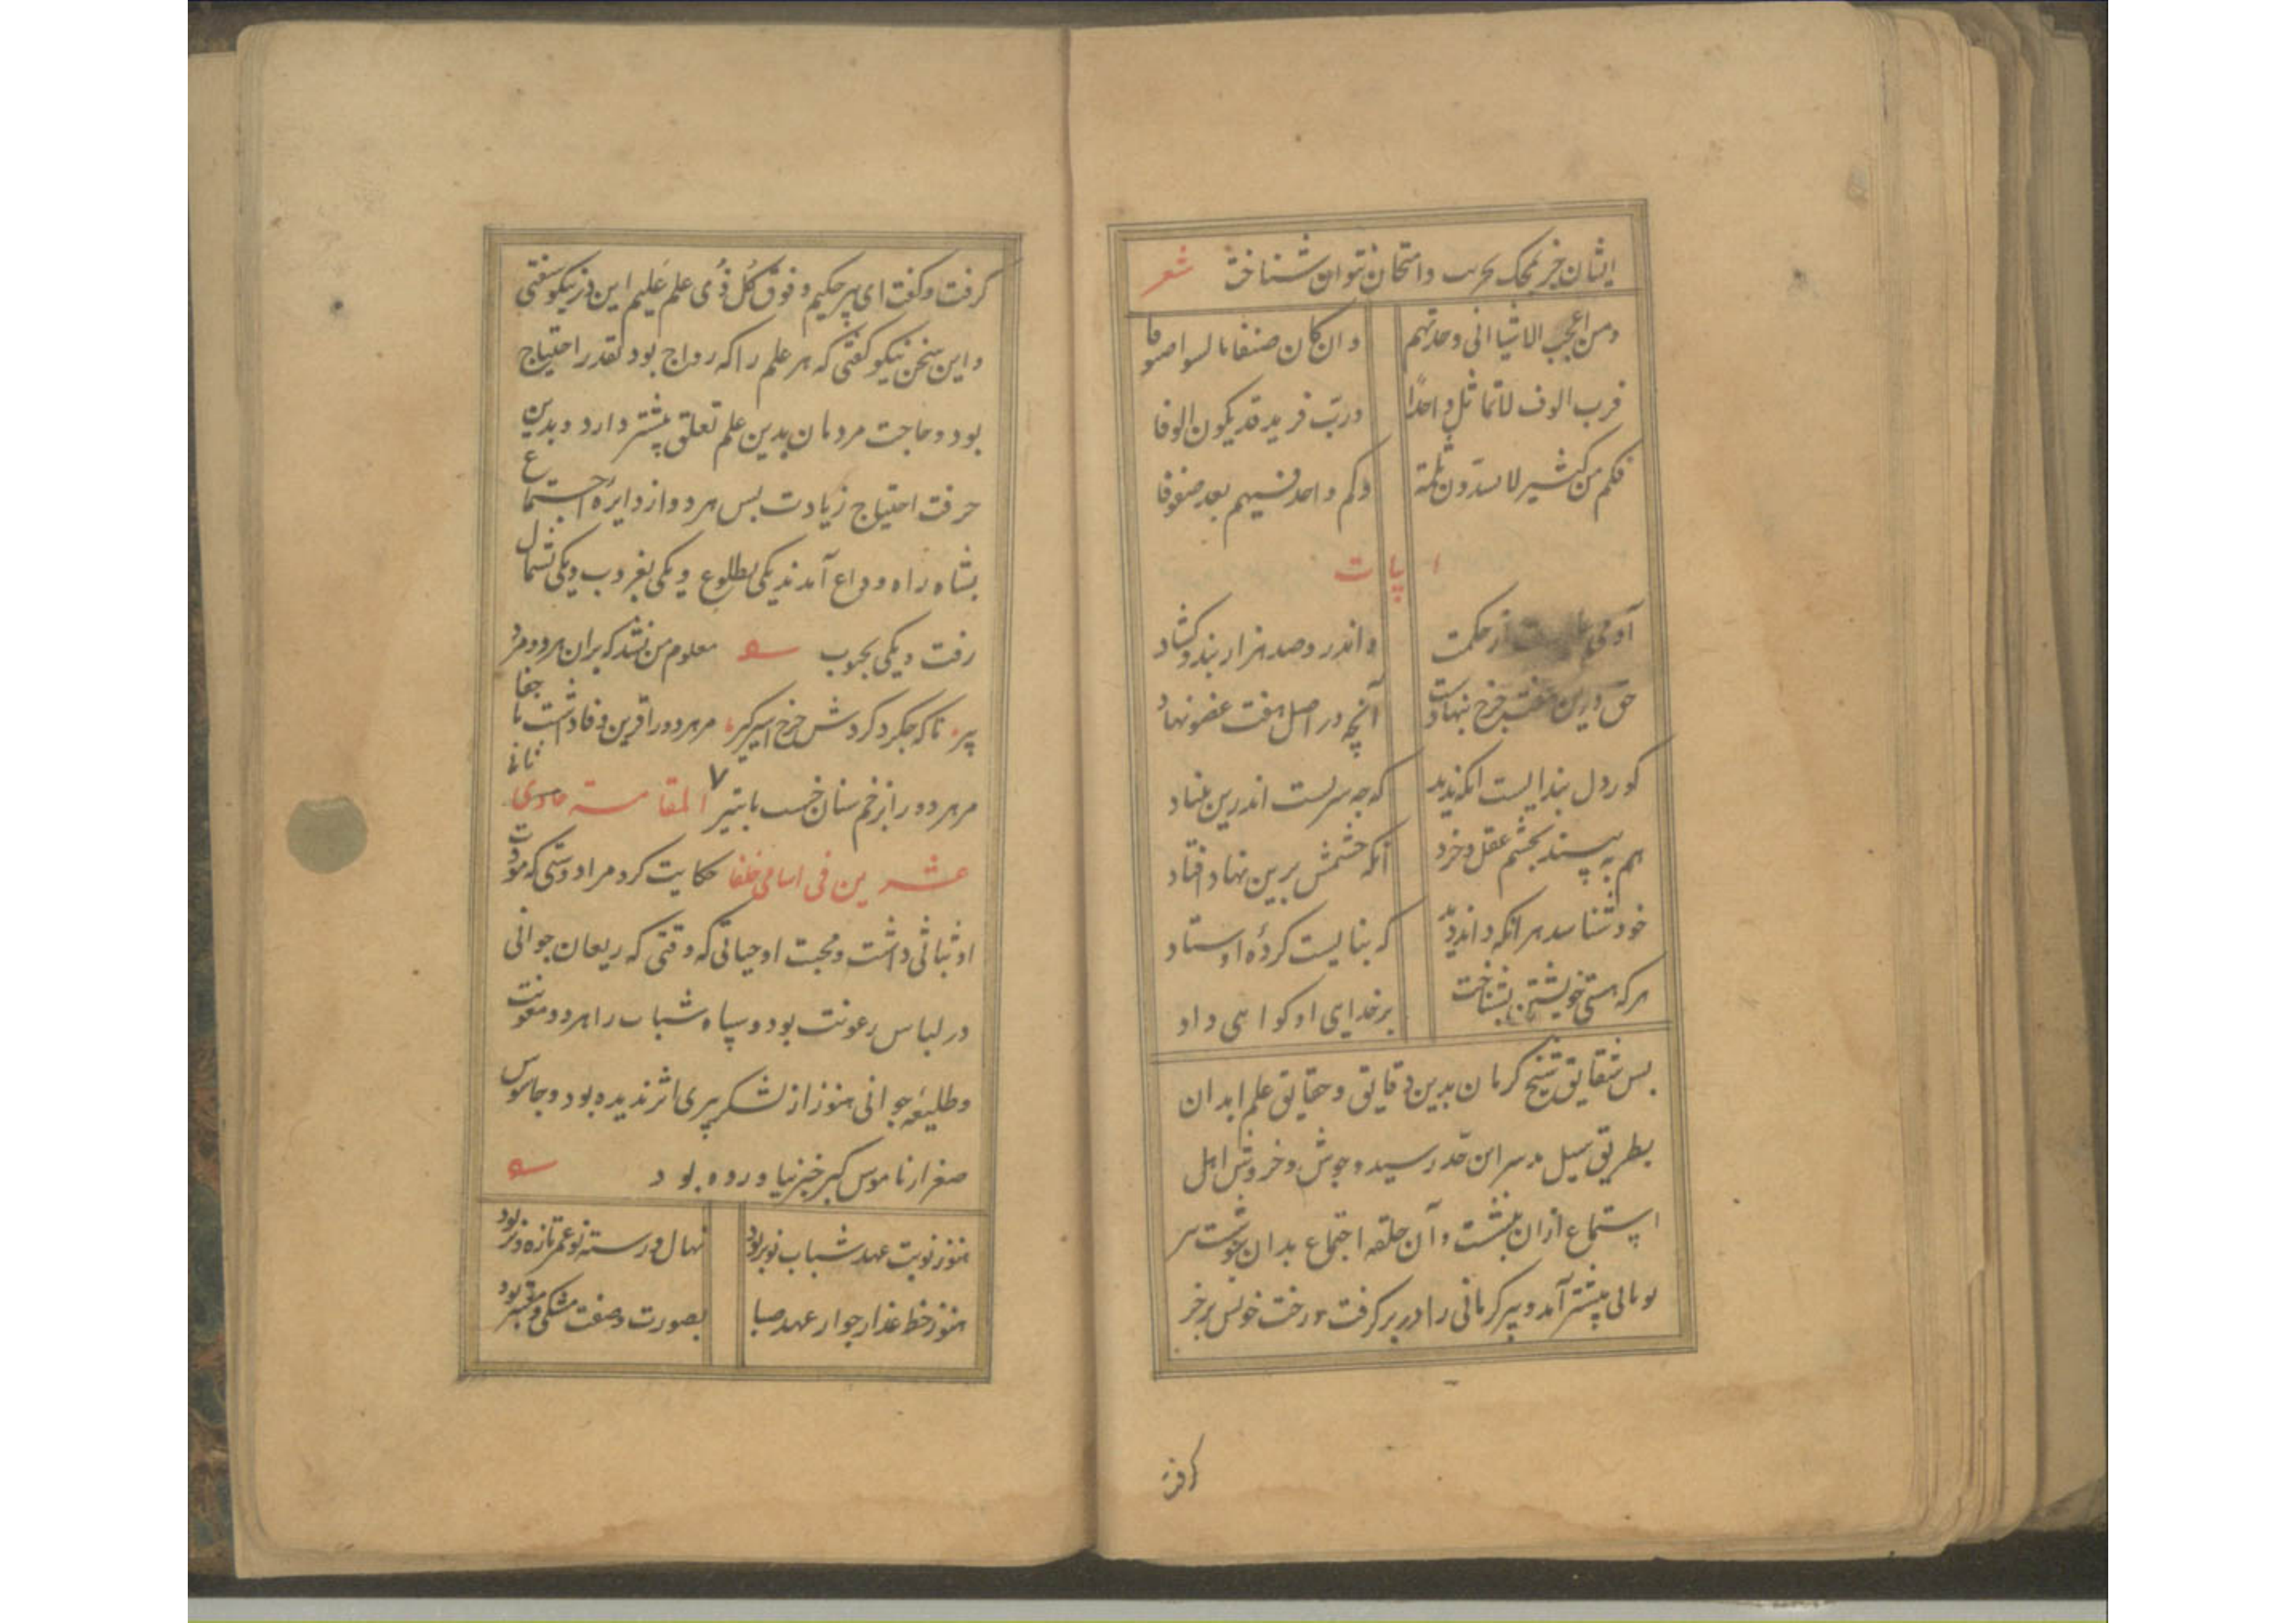 ایشان جز بمحک تجربت و امتحان نتوان شناخت شعر
ومن اعجب الاشیا انی وجدتهم وان کان صنفا
فرب الوف لا تماثل واحدًا وربّ فرید قد یکون الوفا
فکم من کثیر لا یسدّون ثلمة وکم واحد فیهم یعد صفوفا
ابیات
آدمی از حکمت واندرو صد هزار بند و کشاد
حق درین چرخ ننهادست آنچه در اصل هفت عضو نهاد
کور دل بنداییست انکه ندید که چه سریست اندرین بنیاد
هم به پسندد بچشم عقل و خرد آنکه چشمش برین نهاد افتاد
خود شناسد هر انکه داند دید که بناییست کردهٔ اوستاد
هر که هستی خویشتن بشناخت بر خدایی او کواهی داد
بس شقایق شیخ کرمان بدین دقایق و حقایق علم ابدان
بطریق سیل بدین قدر رسید و جوش و خروش اهل
استماع ازان بنشست و آن حلقه اجتماع بدان پیوست پیر
یونانی پیشتر آمد و پیر کرمانی را در بر کرفت و رخت خویش بر خر
کرفت
کرفت و کفت ای پیر حکیم و فوق کُل ذی علم عَلیم این در نیکو سفتی
و این سخن نیکو کفتی که هر علم را که رواج بود بقدر احتیاج
بود و حاجت مردمان بدین علم تعلق بیشتر دارد و بدین
حرفت احتیاج زیادت بس هر دو از دایرهٔ اجتماع
بشاه راه وداع آمدند یکی بطلوع و یکی بغروب و یکی بشمال
رفت و یکی بجنوب معلوم من نشد که بران هر دو مرد
پیر تا که چکرد کردش چرخ اسیر کیر مر هر دو را قرین وفا داشت یا جفا
مر هر دو را ز زخم سنان خست یا بتیر ۷ المقامة حادی ثانی
عشرین فی اسامی خلفا حکایت کرد مرا دوستی که مودت
او ثباتی داشت و محبت او حیاتی که وقتی که ریعان جوانی
در لباس رعونت بود و سپاه شباب را مدد و معونت
و طلیعه جوانی هنوز از لشکر پیری اثر ندیده بود و جاسوس
صغر از ناموس کبر خبر نیاورده بود
هنوز نوبت عهد شباب نوبر بود نهال رسته نو عمر تازه و تر بود
هنوز خط عذار جوار عهد صبا بصورت و صفت مشکی و معنبر بود